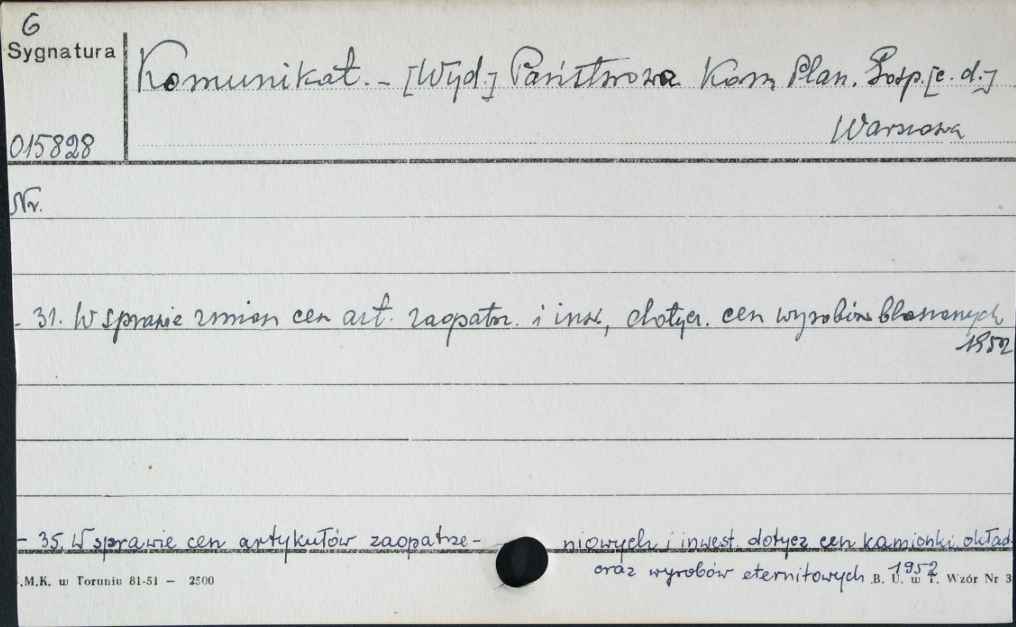 6
Sygnatura
Komunikat. - [Wyd.] Państwowa Kom. Plan. Gosp. [e. d.]
Warszawa
015828
Nr.
- 31. W sprawie zmian cen art. zaopatrz. i inw., dotycz. cen wyrobów blaszanych
1952
- 35. W sprawie cen artykułów zaopatrze- niowych i inwest. dotycz cen kamionki, okład.
oraz wyrobów eternitowych 1952
.M.K. w Toruniu 81-51 — 2500 B. U. w T. Wzór Nr 3